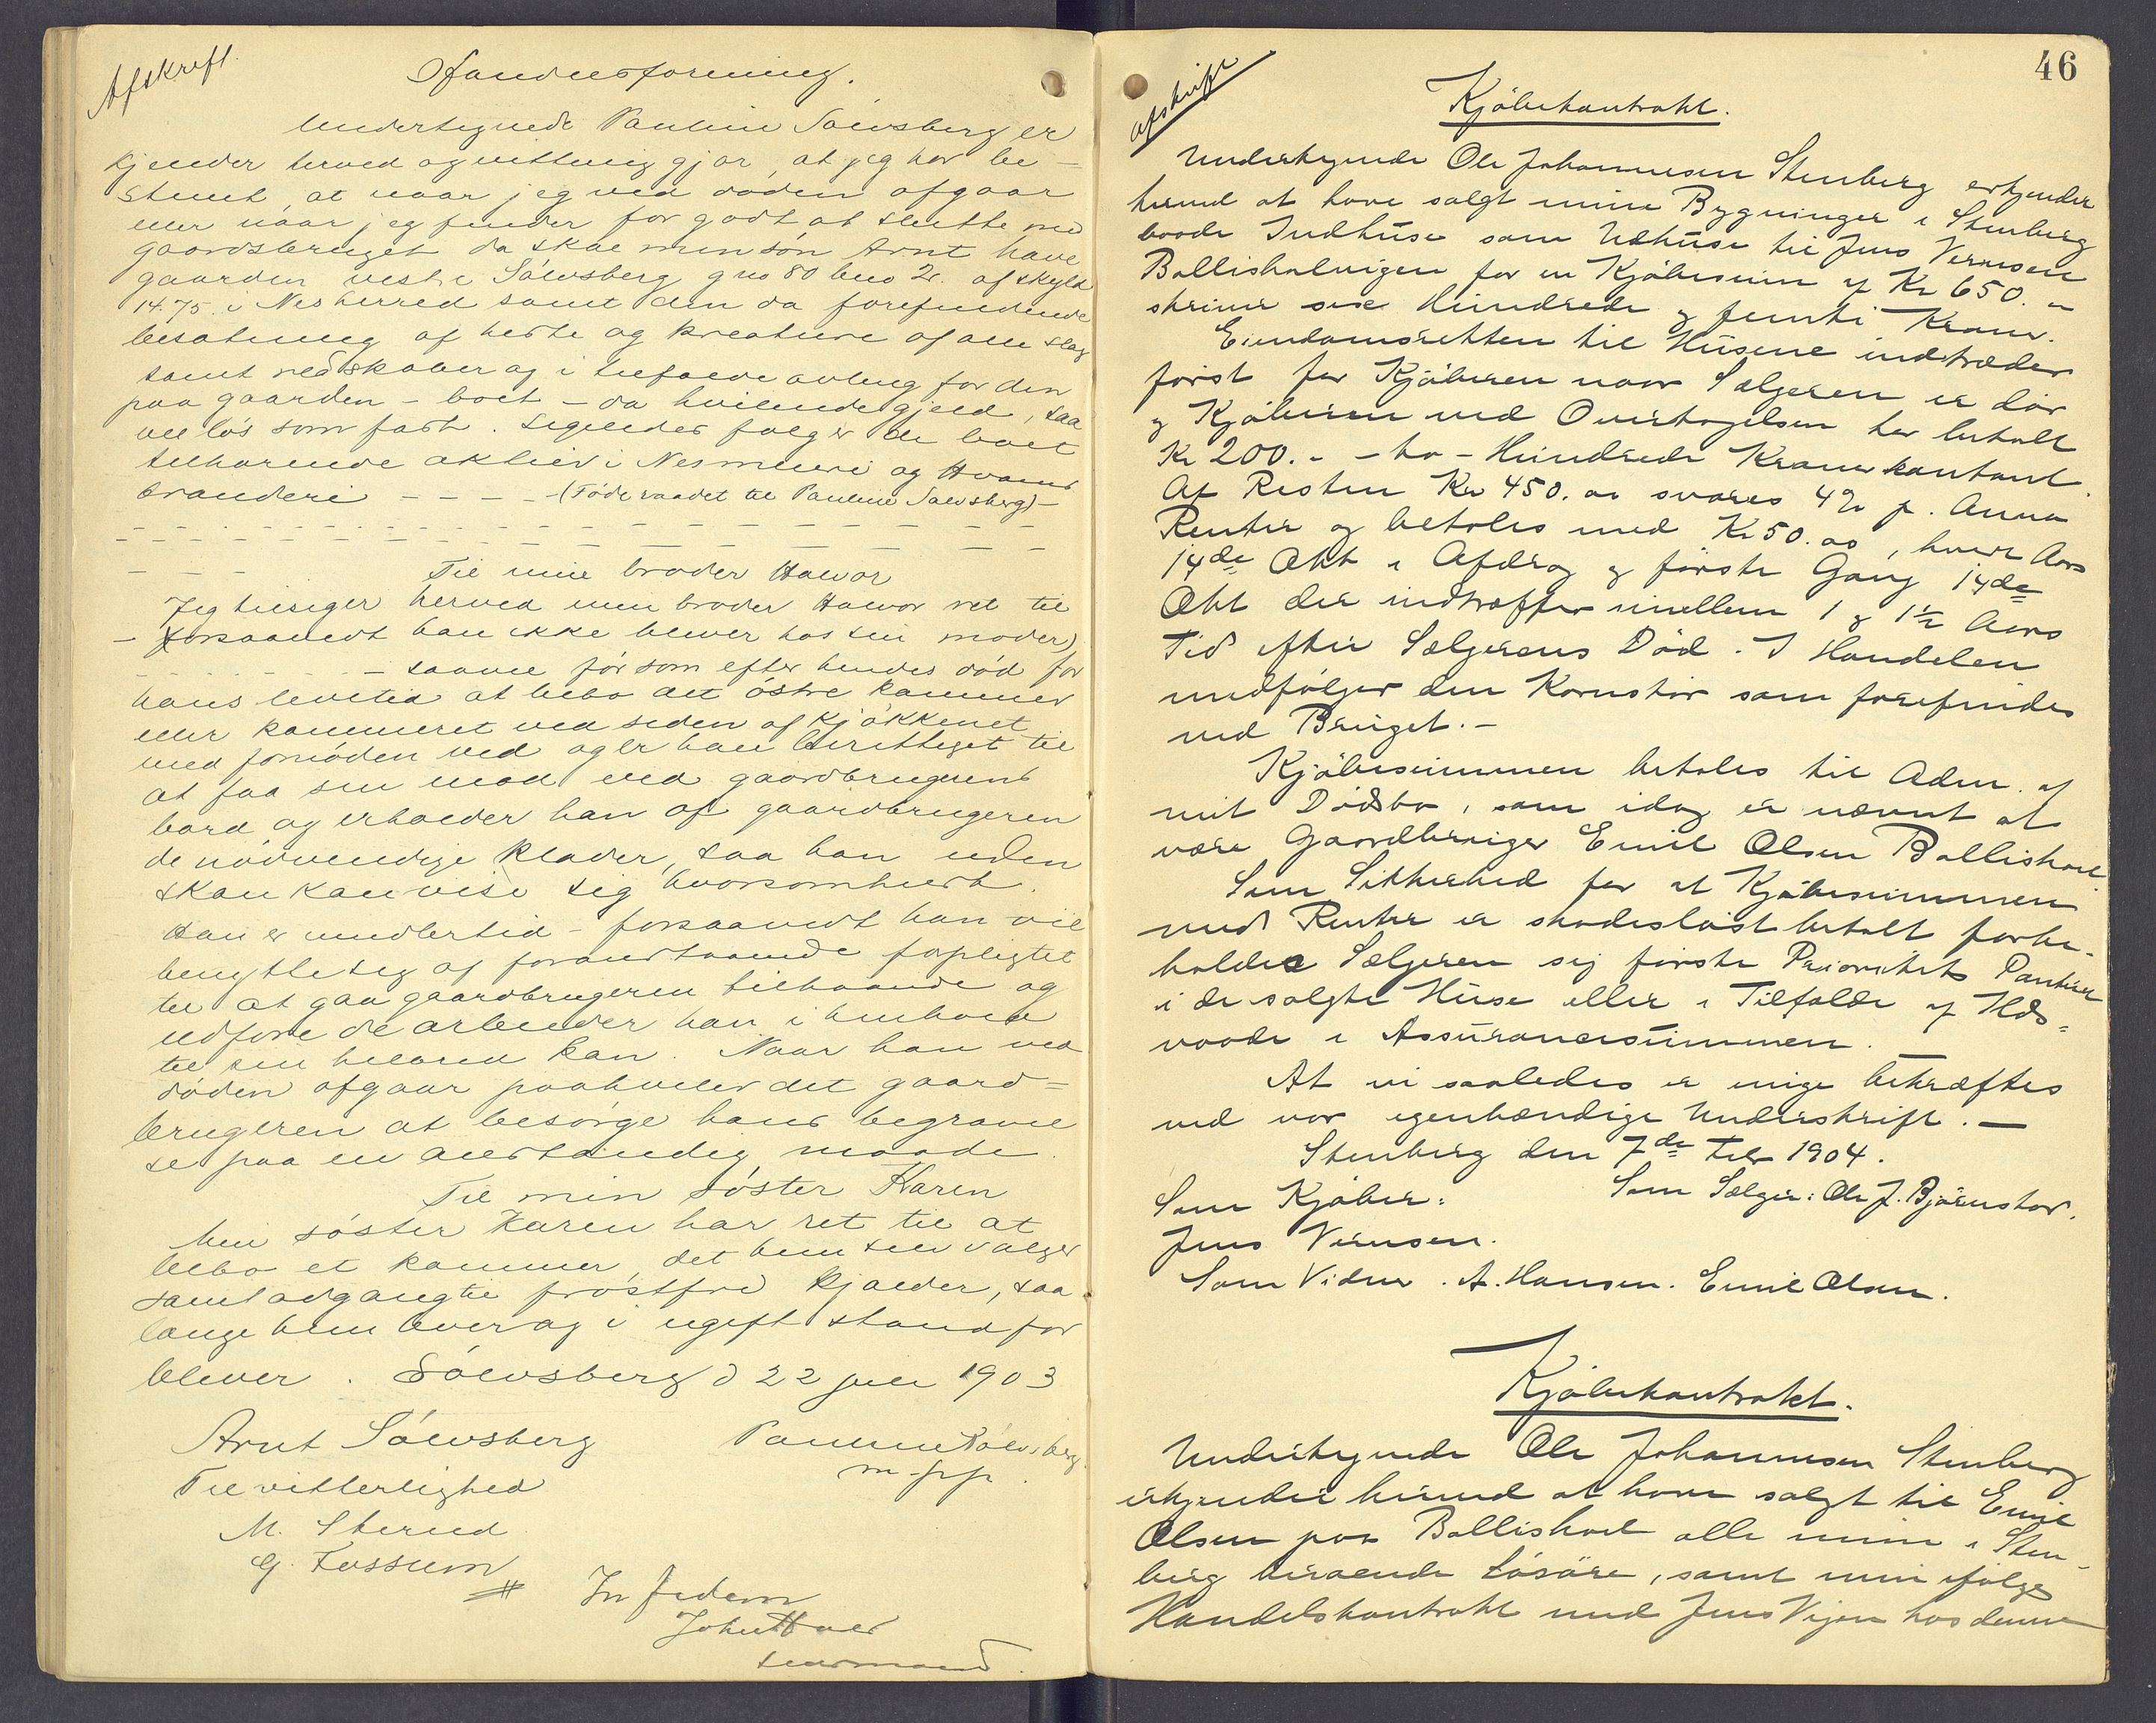 Afskreft.
Standsforening.
Undertegnede Pauline Sölvsberg er
kjender herved og vitterlig gjør, at jeg har be-
stemt, at naar jeg ved döden afgaar
eller naar jeg finder for godt at slutte med
gaardsbruget da skal min sön Arnt have
gaarden vestre Sölvsberg gno 80 bno 2. af skyld
14.75. i Nes herred samt den da forefindende
besætning af heste og kreature af alle slag
samt redskaber og i tilfælde avling for den
paa gaarden - boet - da hvilende gjeld, saa
vel lös som fast. Ligeledes følger de boet
tilhørende aktier i Nesmeieri og Hvams
brænderi - - - - (Föderaadet til Pauline Sölvsberg) -
Til min broder Halvor
Jeg tilsiger herved min broder Halvor ret til
- forsaavidt han ikke bliver hos sin moder)
- saavel för som efter hendes död for
hans levetid at bebo det östre kammer
eller kammeret ved siden af kjökkenet
med fornöden ved og er han berettiget til
at faa sin mad ved gaardbrugerens
bord og erholder han af gaardbrugeren
de nödvendige klæder, saa han uden
skam kan vise sig hvorsomhelst.
Han er imidlertid - forsaavidt han vil
benytte sig af foranstaaende forpligtet
til at gaa gaardbrugeren tilhaande og
udföre de arbeider han i henhold
til sin helbred kan. Naar han ved
döden afgaar paahviler det gaard=
brugeren at besörge hans begravel
se paa en anstændig maade.
Til min söster Karen
Min söster Karen har ret til at
bebo et kammer, det hun selv vælger
samt adgang til frostfri kjælder, saa
længe hun lever og i ugift stand for
bliver. Sölvsberg d 22 juli 1903
Arnt Sölvsberg Pauline Sölvsberg
m. p. p.
Til vitterlighed
M. Sterud
G. Fossum
In fidem
John Hvael
lensmand.
46
Afskrift
Kjöbekontrakt.
Undertegnede Ole Johannesen Stenberg erkjender
herved at have solgt mine Bygninger i Stenberg
baade Indhuse som Udhuse til Jens Vernsen
Ballisholvigen for en Kjöbesum af Kr 650. -
skriver sex Hundrede og femti Kroner.
Eiendomsretten til Husene indtræder
först for Kjöberen naar Sælgeren er dör
og Kjöberen ved Overtagelsen har betalt
Kr 200. - - to - Hundrede Kroner kontant.
Af Resten Kr 450. 00 svares 4% p. Anno
Renter og betales med Kr 50. 00, hvert Aars
14de Okt i Afdrag og förste Gang 14de
Okt der indtræffer imellem 1 og 1½ Aars
Tid efter Sælgerens Död. I Handelen
medfölger den Kornstör som forefindes
ved Bruget. -
Kjöbesummen betales til Adm. af
mit Dödsbo, som idag er nævnt at
være Gaardbruger Emil Olsen Ballishoel.
Som Sikkerhed for at Kjöbesummen
med Renter er skadeslöst betalt forbe-
holder Sælgeren sig förste Prioritets Panteret
i de solgte Huse eller i Tilfælde af Ilds=
vaade i Assurancesummen.
At vi saaledes er enige bekræftes
ved vor egenhændige Underskrift. -
Stenberg den 7de Febr 1904.
Som Kjöber: Som Sælger: Ole J. Björnstad.
Jens Vernsen.
Som Vidner. A. Hansen. Emil Olsen.
Kjöbekontrakt.
Undertegnede Ole Johannesen Stenberg
erkjender herved at have solgt til Emil
Olsen paa Ballishoel alle mine i Sten-
berg værende Lösöre, samt min ifölge
Handelskontrakt med Jens Vigen hos denne